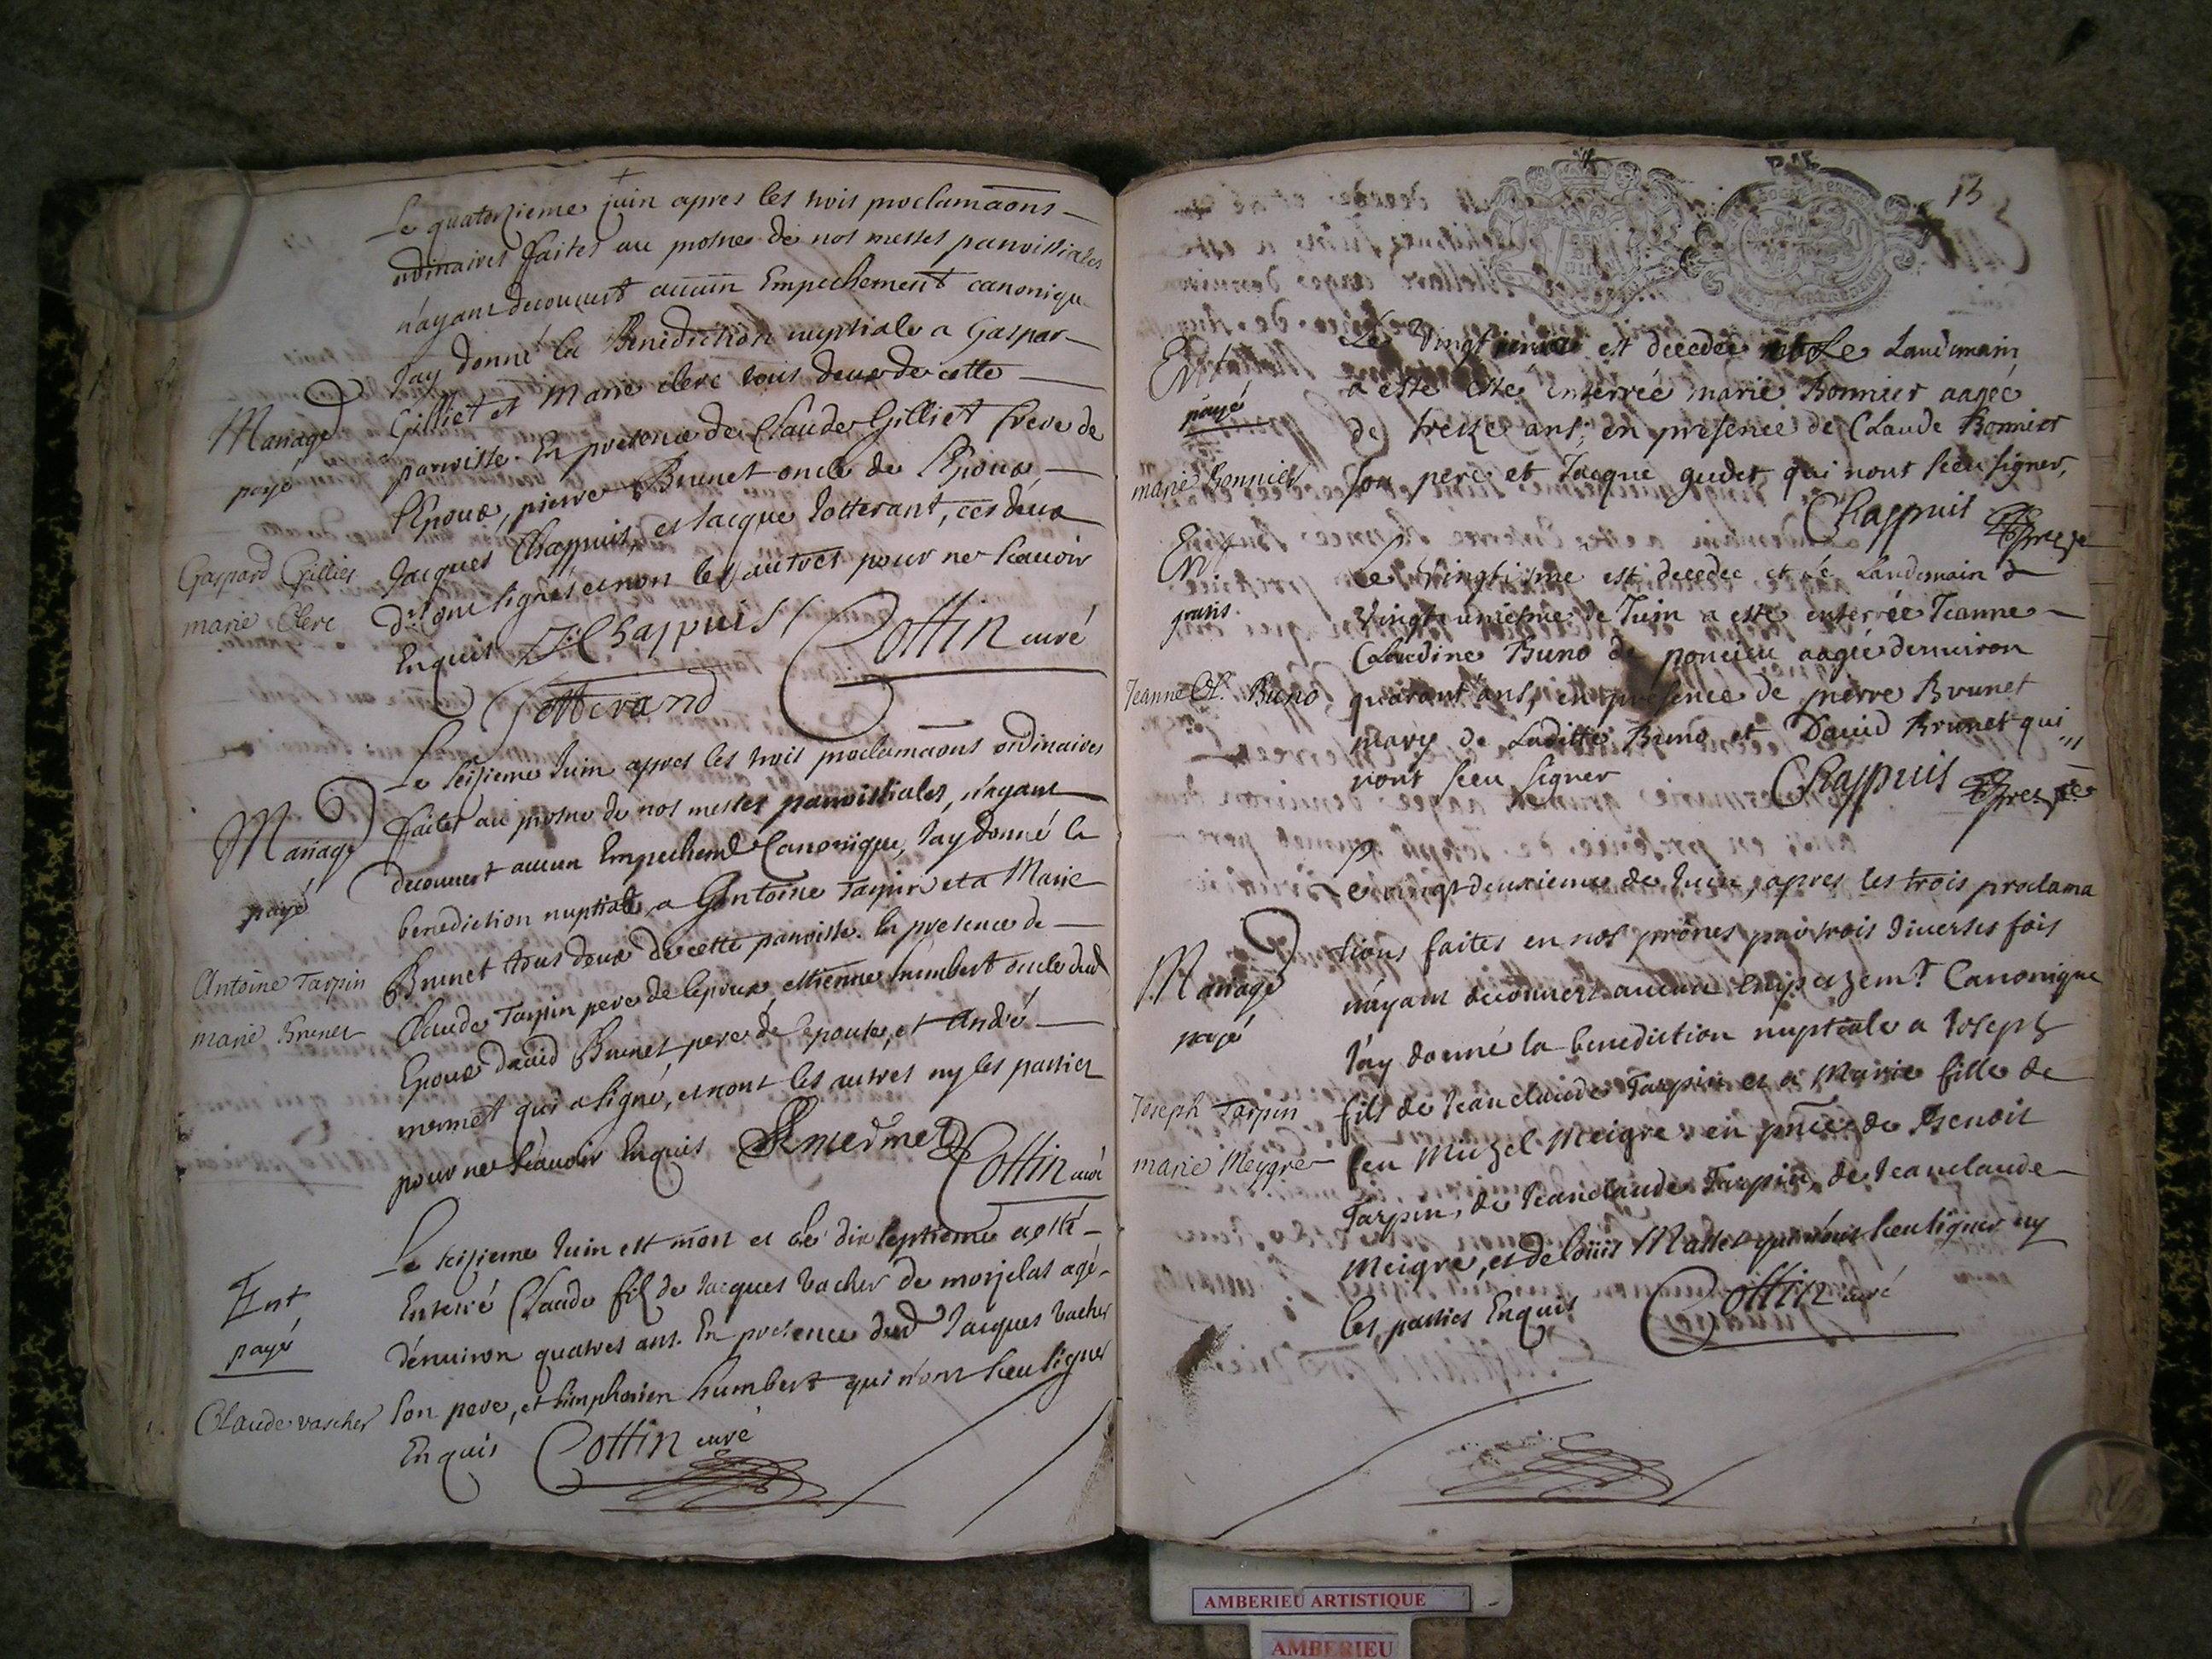 Le quatorzieme juin apres les trois proclamaons
ordinaires faites au prosne de nos messes parroissiales
n'ayant decouvert aucun Empechement canonique
Jay donné la Benediction nuptiale a Gaspar
Mariage
payé
Gaspard Gilliet
marie Clerc
Gilliet et Marie clerc tous deux de cette
parroisse. En presence de Claude Gilliet frere de
l'Epoux, pierre Brunet oncle de l'Epoux,
Jacques Chappuis, et Jacque Jotterant, ces deux
dr. ont signés et non les autres pour ne scauoir
Enquis J. Chappuis Cottin curé
Jotterand
Le seizieme Juin apres les trois proclamaons ordinaires
Mariage
payé
Antoine Tarpin
marie Brunet
faites au prosne de nos messes parroissiales, n'ayant
decouuert aucun Empechemt Canonique, Jay donné la
benediction nuptiale, a Antoine Tarpin et a Marie
Brunet tous deux de cette parroisse. En presence de
Claude Tarpin pere de lepoux, ettienne humbert oncle dud
Epoux david Brunet pere de l'epouse, et André
mermet qui a signé, et nont les autres ny les parties
pour ne scauoir Enquis Amermet Cottin curé
Le seizieme Juin est mort et le dix septieme a esté
Ent
payé
Claude vascher
Enterré Claude fils de Jacques Vacher de morjelas agé
d'enuiron quatres ans. En presence dud Jacques Vacher
son pere, et simphorien humbert qui n'ont sceu signer
Enquis Cottin curé
13
Ent
payé
marie Bonnier
Le Vingt est decedée Le Landemain
a este esté enterrée marie Bonnier aagée
de treize ans, en presence de Claude Bonnier
son pere et Jacque gudet qui nont sceu signer,
Chappuis
Ent
gratis
Jeanne Cl. Buno
Le Vingtisme est decedée et Le Landemain
Vingt uniesme de Juin a esté enterrée Jeanne
Claudine Buno de poncieu aagée denuiron
quarant'ans, en presence de pierre Brunet
mary de Laditte Buno et Dauid Brunet qui
nont sceu signer Chappuis
Le vingt-deuxieme de Juin, apres les trois proclama
Mariage
payé
Joseph Tarpin
marie Meygre
tions faites en nos prônes par trois diuerses fois
n'ayant decouuert aucun empechemt Canonique
J'ay donné la benediction nuptiale a Joseph
fils de Jeanclaude Tarpin et a Marie fille de
feu Michel Meigre en pnce de Benoit
Tarpin, de Jeanclaude Tarpin, de Jeanclaude
Meigre, et de Loüis Masset qui n'ont sceu signer ny
les parties Enquis Cottin curé
AMBERIEU ARTISTIQUE
AMBERIEU